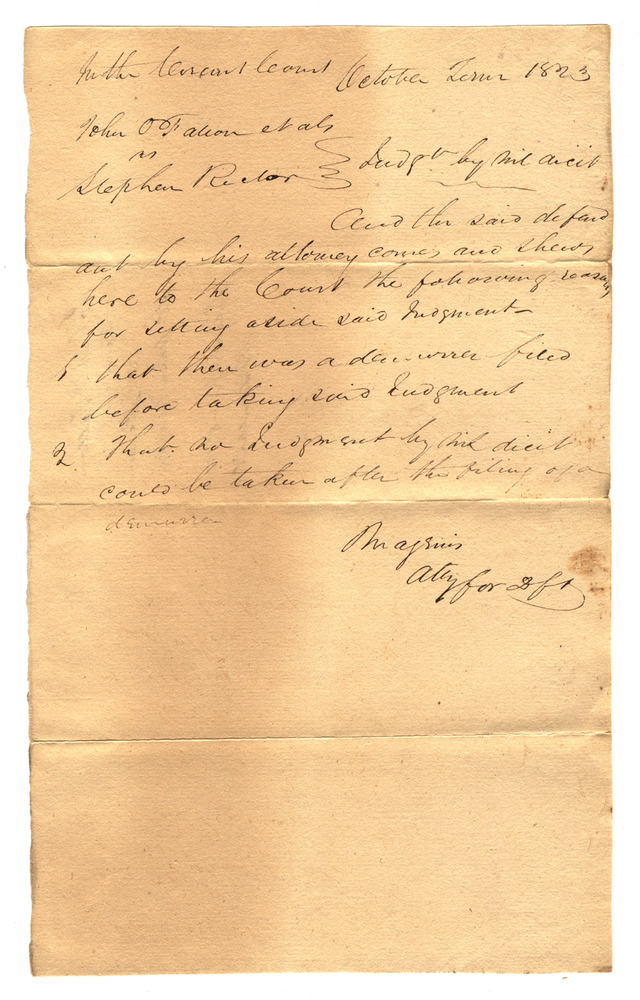 In the Circuit Court October Term 1823
John O'Fallon et als
vs
Stephen Rector } Judgt by nil dicit
And the said defend
ant by his attorney comes and shews
here to the Court the following reasons
for setting aside said Judgment—
1 that there was a demurrer filed
before taking said Judgment
2. That no Judgment by nil dicit
could be taken after the filing of a
demurrer
Magenis
Atty for Dft